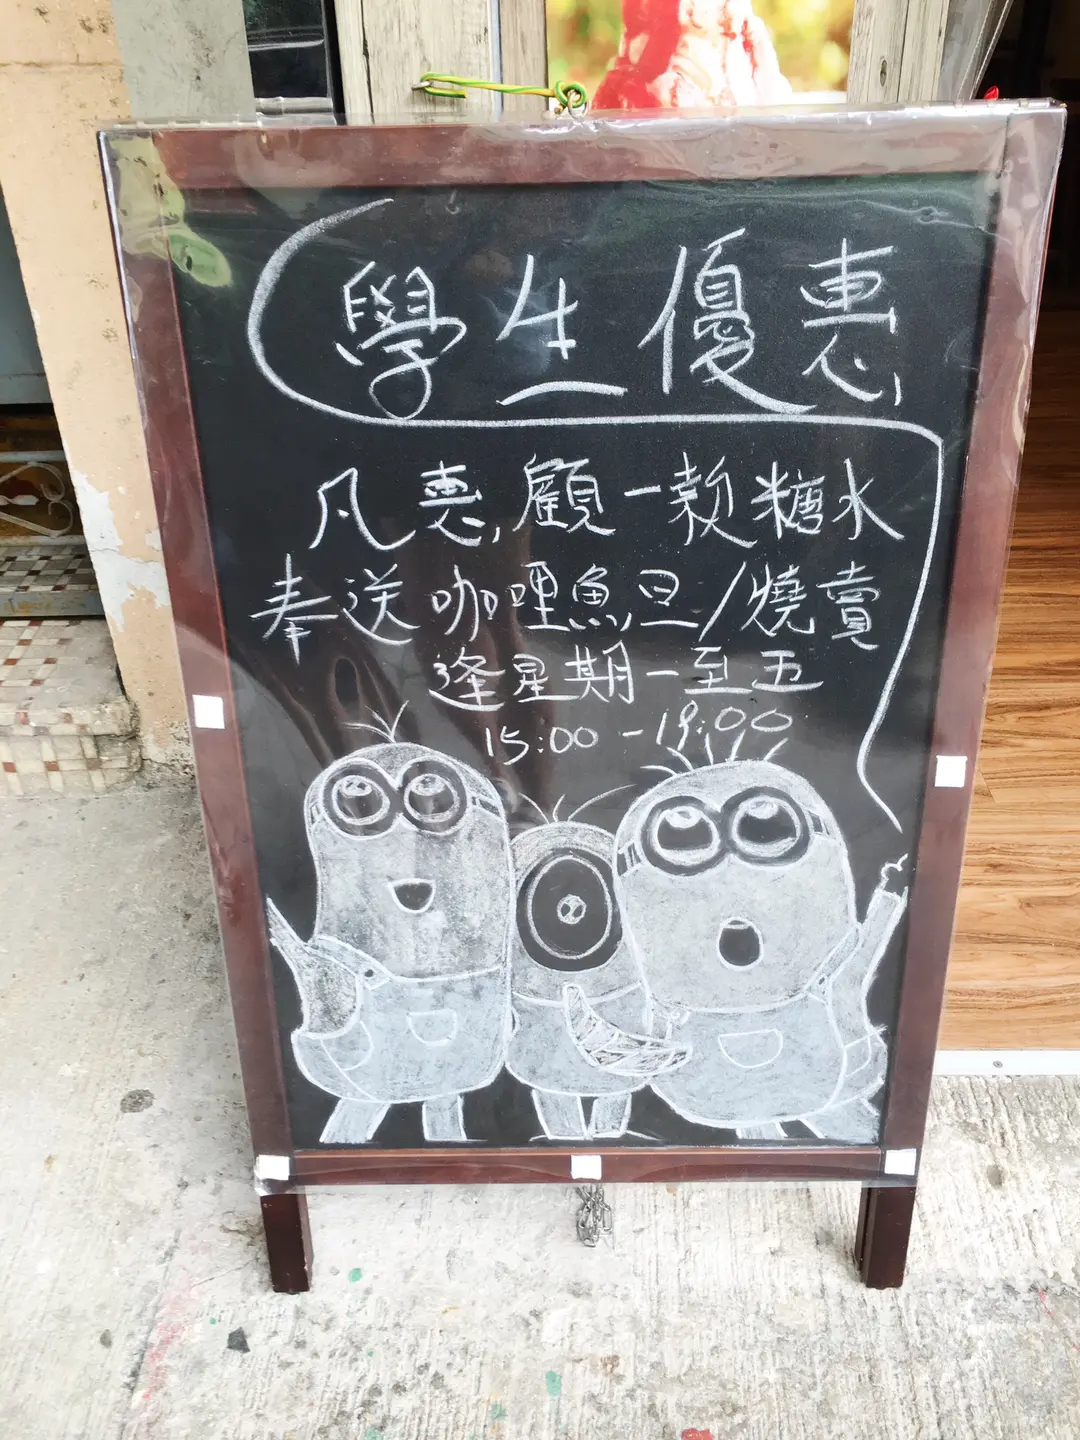 學生優惠
凡惠顧一款糖水
奉送咖哩魚旦/燒賣
逢星期一至五
15:00-19:00